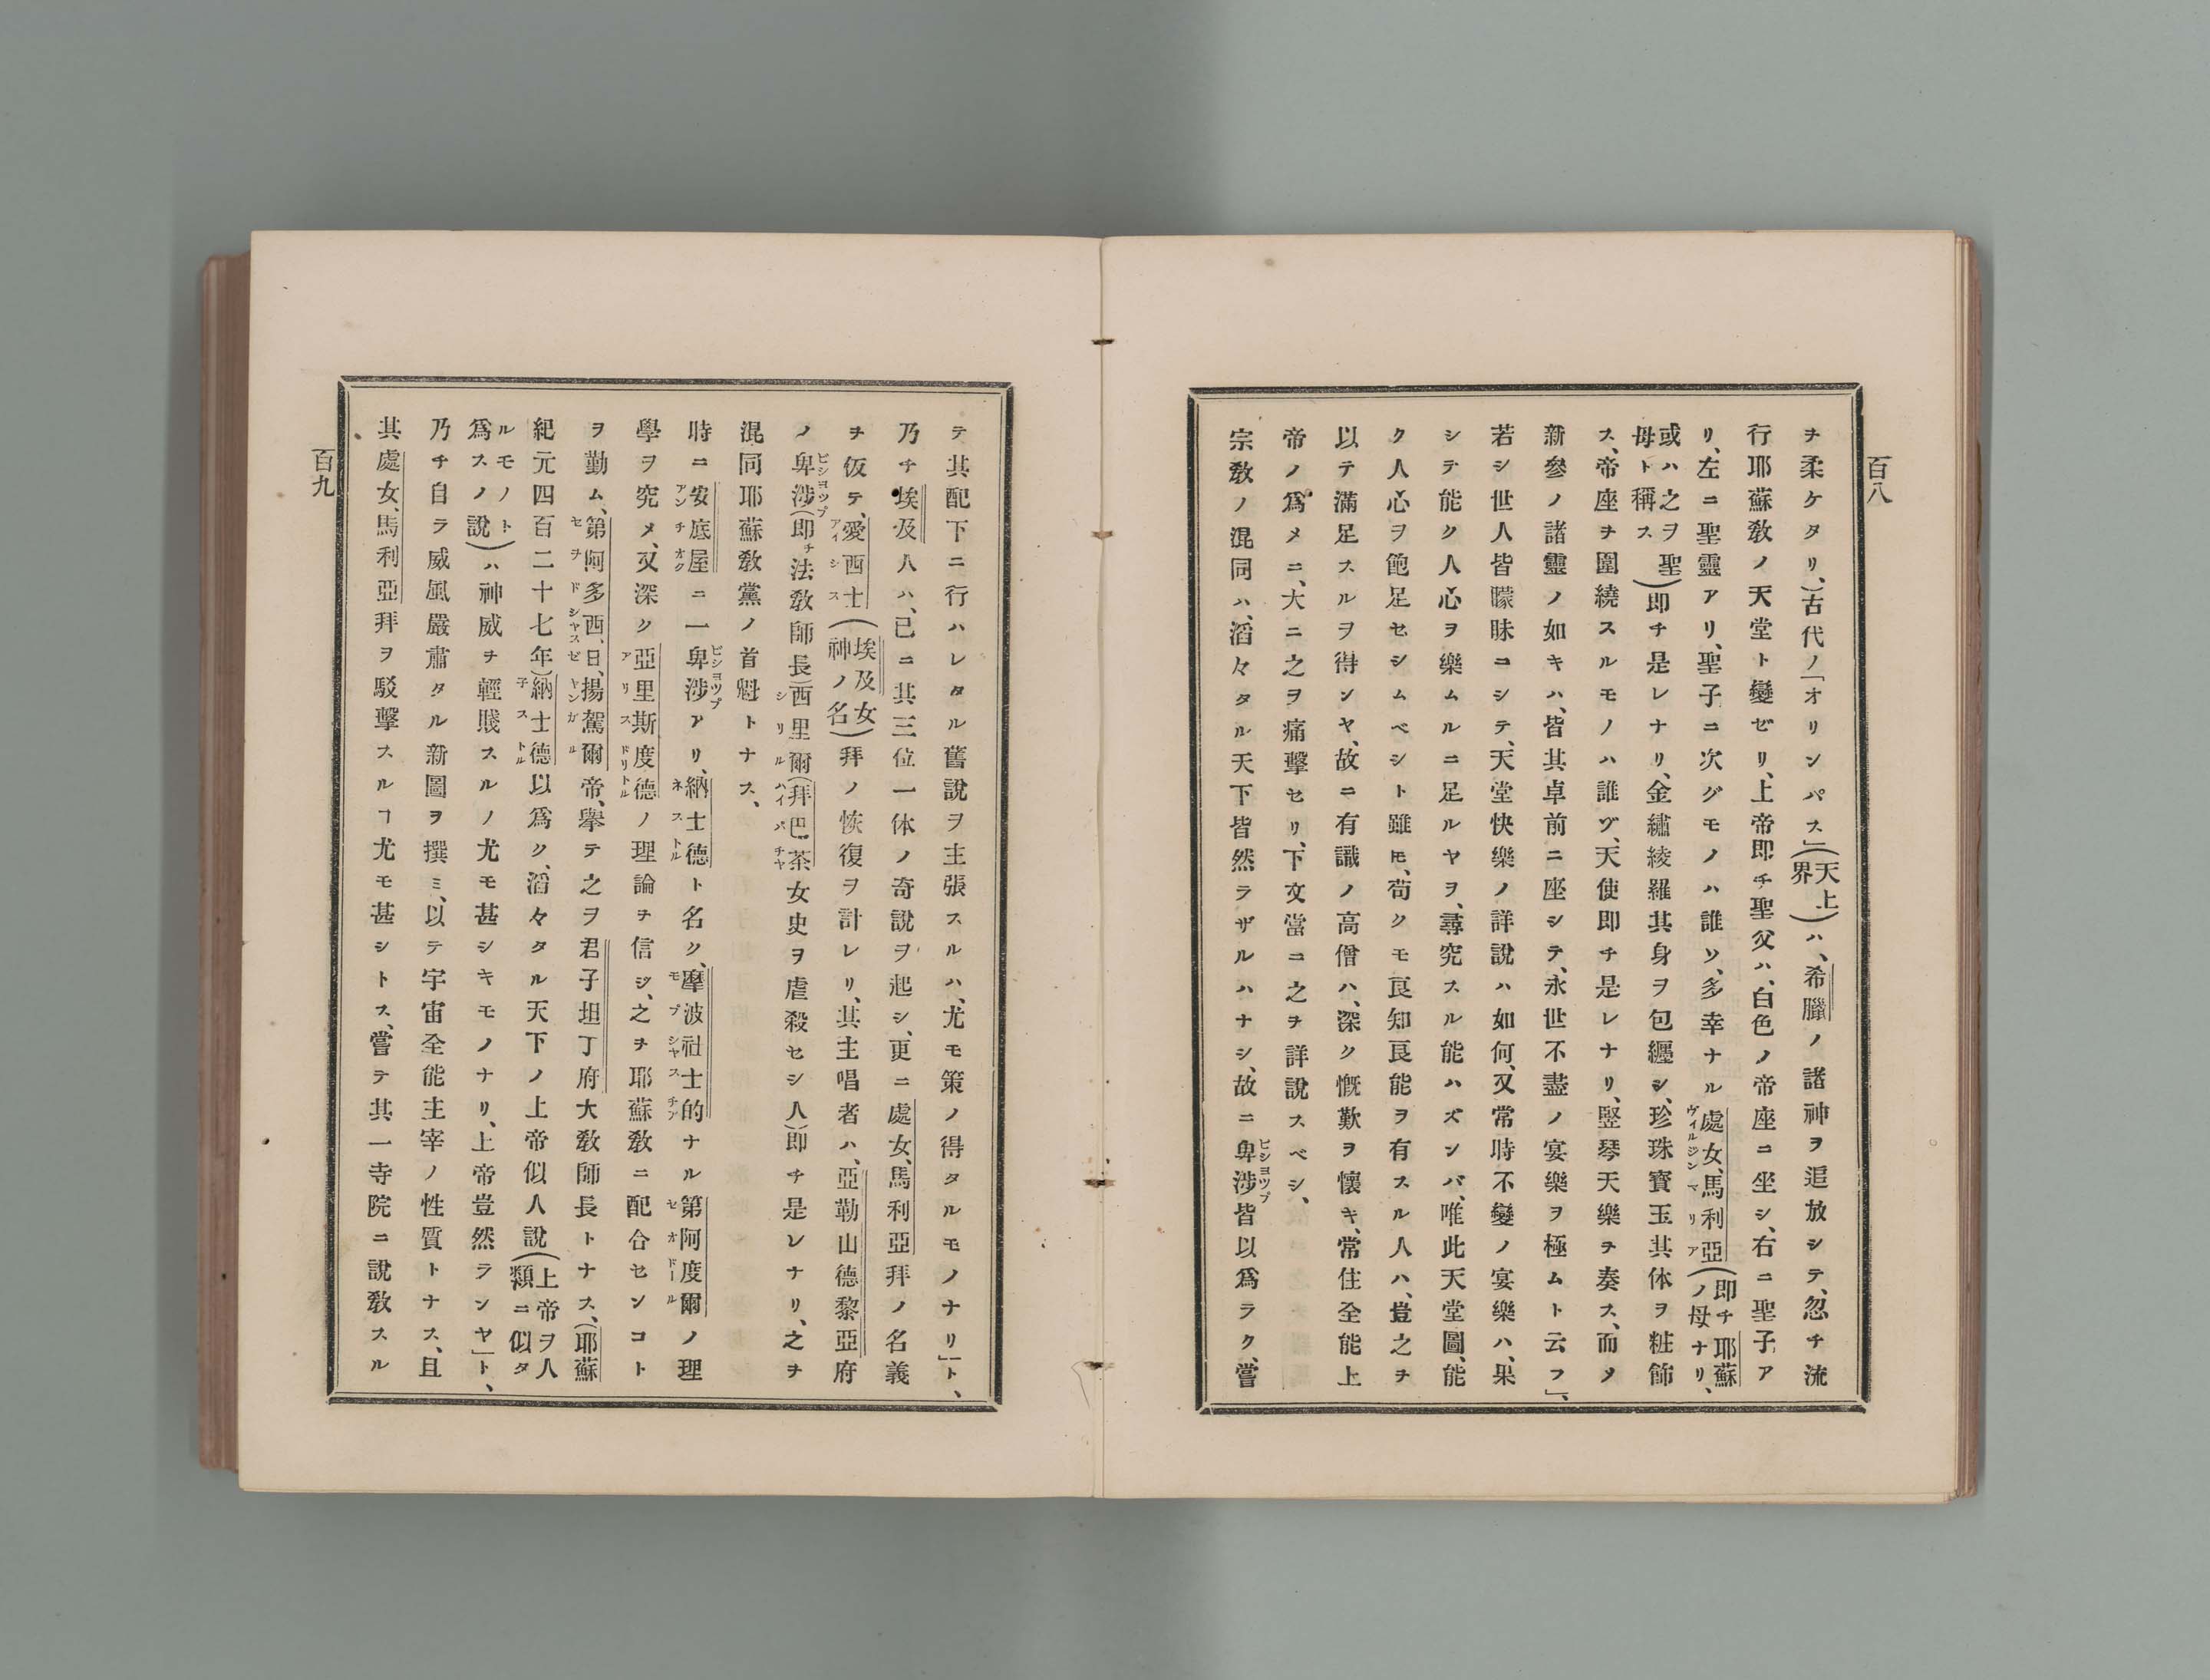 百八
ヲ柔ケタリ、)古代ノ「オリンパス」(天上界)ハ、希臘ノ諸神ヲ追放シテ、忽チ流
行耶蘇敎ノ天堂ト變ゼリ、上帝即チ聖父ハ、白色ノ帝座ニ坐シ、右ニ聖子ア
リ、左ニ聖靈アリ、聖子ニ次グモノハ誰ソ、多幸ナル處女、馬利亞(即チ耶蘇ノ母ナリ、
或ハ之ヲ聖母ト稱ス)即チ是レナリ、金繡綾羅其身ヲ包纒シ、珍珠寳玉其体ヲ粧飾
ス、帝座ヲ圍繞スルモノハ誰ゾ、天使即チ是レナリ、竪琴天樂ヲ奏ス、而メ
新參ノ諸靈ノ如キハ、皆其卓前ニ座シテ、永世不盡ノ宴樂ヲ極ムト云フ」、
若シ世人皆朦昧ニシテ、天堂快樂ノ詳說ハ如何、又常時不變ノ宴樂ハ、果
シテ能ク人心ヲ樂ムルニ足ルヤヲ、尋究スル能ハズンバ、唯此天堂圖、能
ク人心ヲ飽足セシムベシト雖モ、苟クモ良知良能ヲ有スル人ハ、豈之ヲ
以テ滿足スルヲ得ンヤ、故ニ有識ノ高僧ハ、深ク慨歎ヲ懷キ、常住全能上
帝ノ爲メニ、大ニ之ヲ痛擊セリ、下文當ニ之ヲ詳說スベシ、
宗敎ノ混同ハ、滔々タル天下皆然ラザルハナシ、故ニ卑涉皆以爲ラク、嘗
百九
テ其配下ニ行ハレタル舊說ヲ主張スルハ、尤モ策ノ得タルモノナリ」ト、
乃チ埃及人ハ、已ニ其三位一体ノ奇說ヲ起シ、更ニ處女、馬利亞拜ノ名義
ヲ仮テ、愛西士(埃及女神ノ名)拜ノ恢復ヲ計レリ、其主唱者ハ、亞勒山德黎亞府
ノ卑涉(即チ法敎師長)西里爾(拜巴茶女史ヲ虐殺セシ人)即チ是レナリ、之ヲ
混同耶蘇敎黨ノ首魁トナス、
時ニ安底屋ニ一卑涉アリ、納士德ト名ク、摩波社士的ナル第阿度爾ノ理
學ヲ究メ、又深ク亞里斯度德ノ理論ヲ信ジ、之ヲ耶蘇敎ニ配合センコト
ヲ勤ム、第阿多西、日、揚駕爾帝、擧テ之ヲ君子坦丁府大敎師長トナス、(耶蘇
紀元四百二十七年)納士德以爲ク、滔々タル天下ノ上帝似人說(上帝ヲ人類ニ似タ
ルモノト爲スノ說)ハ神威ヲ輕賤スルノ尤モ甚シキモノナリ、上帝豈然ランヤ」ト、
乃チ自ラ威風嚴肅タル新圖ヲ撰ミ、以テ宇宙全能主宰ノ性質トナス、且
其處女、馬利亞拜ヲ駁擊スルヿ尤モ甚シトス、嘗テ其一寺院ニ說敎スル